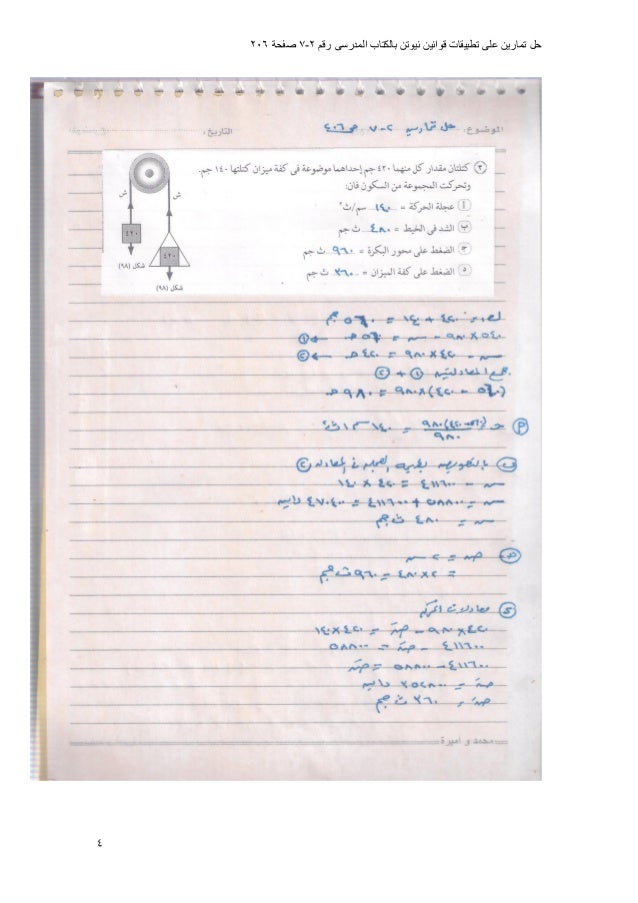 حل تمارين على تطبيقات قوانين نيوتن بالكتاب المدرسى رقم ٢-٧ صفحة ٢٠٦
الموضوع: حل تمارين ٢-٧ ص ٢٠٦ التاريخ:
٣ كتلتان مقدار كل منهما ٤٢٠ جم إحداهما موضوعة فى كفة ميزان كتلتها ١٤٠ جم.
وتحركت المجموعة من السكون فإن:
أ عجلة الحركة = ١٤٠ سم/ث٢
ب الشد فى الخيط = ٤٨٠ ث جم
ج الضغط على محور البكرة = ٩٦٠ ث جم
د الضغط على كفة الميزان = ٣٦٠ ث جم
ش
ش
٤٢٠
٤٢٠
شكل (٩٨)
شكل (٩٨)
= ٤٢٠ + ١٤٠ = ٥٦٠ جم
٥٦٠ × ٩٨٠ - سہ = ٥٦٠ حـ ← ①
سہ - ٤٢٠ × ٩٨٠ = ٤٢٠ حـ ← ②
بجمع المعادلتين ① و ②
(٥٦٠ - ٤٢٠) × ٩٨٠ = ٩٨٠ حـ
= ١٤٠ سم/ث٢
ب بالتعويض بقيمة العجلة فى المعادلة ②
سہ - ٤١١٦٠٠ = ٤٢٠ × ١٤٠
سہ = ٥٨٨٠٠ + ٤١١٦٠٠ = ٤٧٠٤٠٠ داين
سہ = ٤٨٠ ث جم
ج ضہ = ٢ سہ
= ٢ × ٤٨٠ = ٩٦٠ ث جم
د معادلات الحركة
٤٢٠ × ٩٨٠ - ضہ = ٤٢٠ × ١٤٠
٤١١٦٠٠ - ضہ = ٥٨٨٠٠
٤١١٦٠٠ - ٥٨٨٠٠ = ضہ
ضہ = ٣٥٢٨٠٠ داين
ضہ = ٣٦٠ ث جم
محمد و اميرة
٤